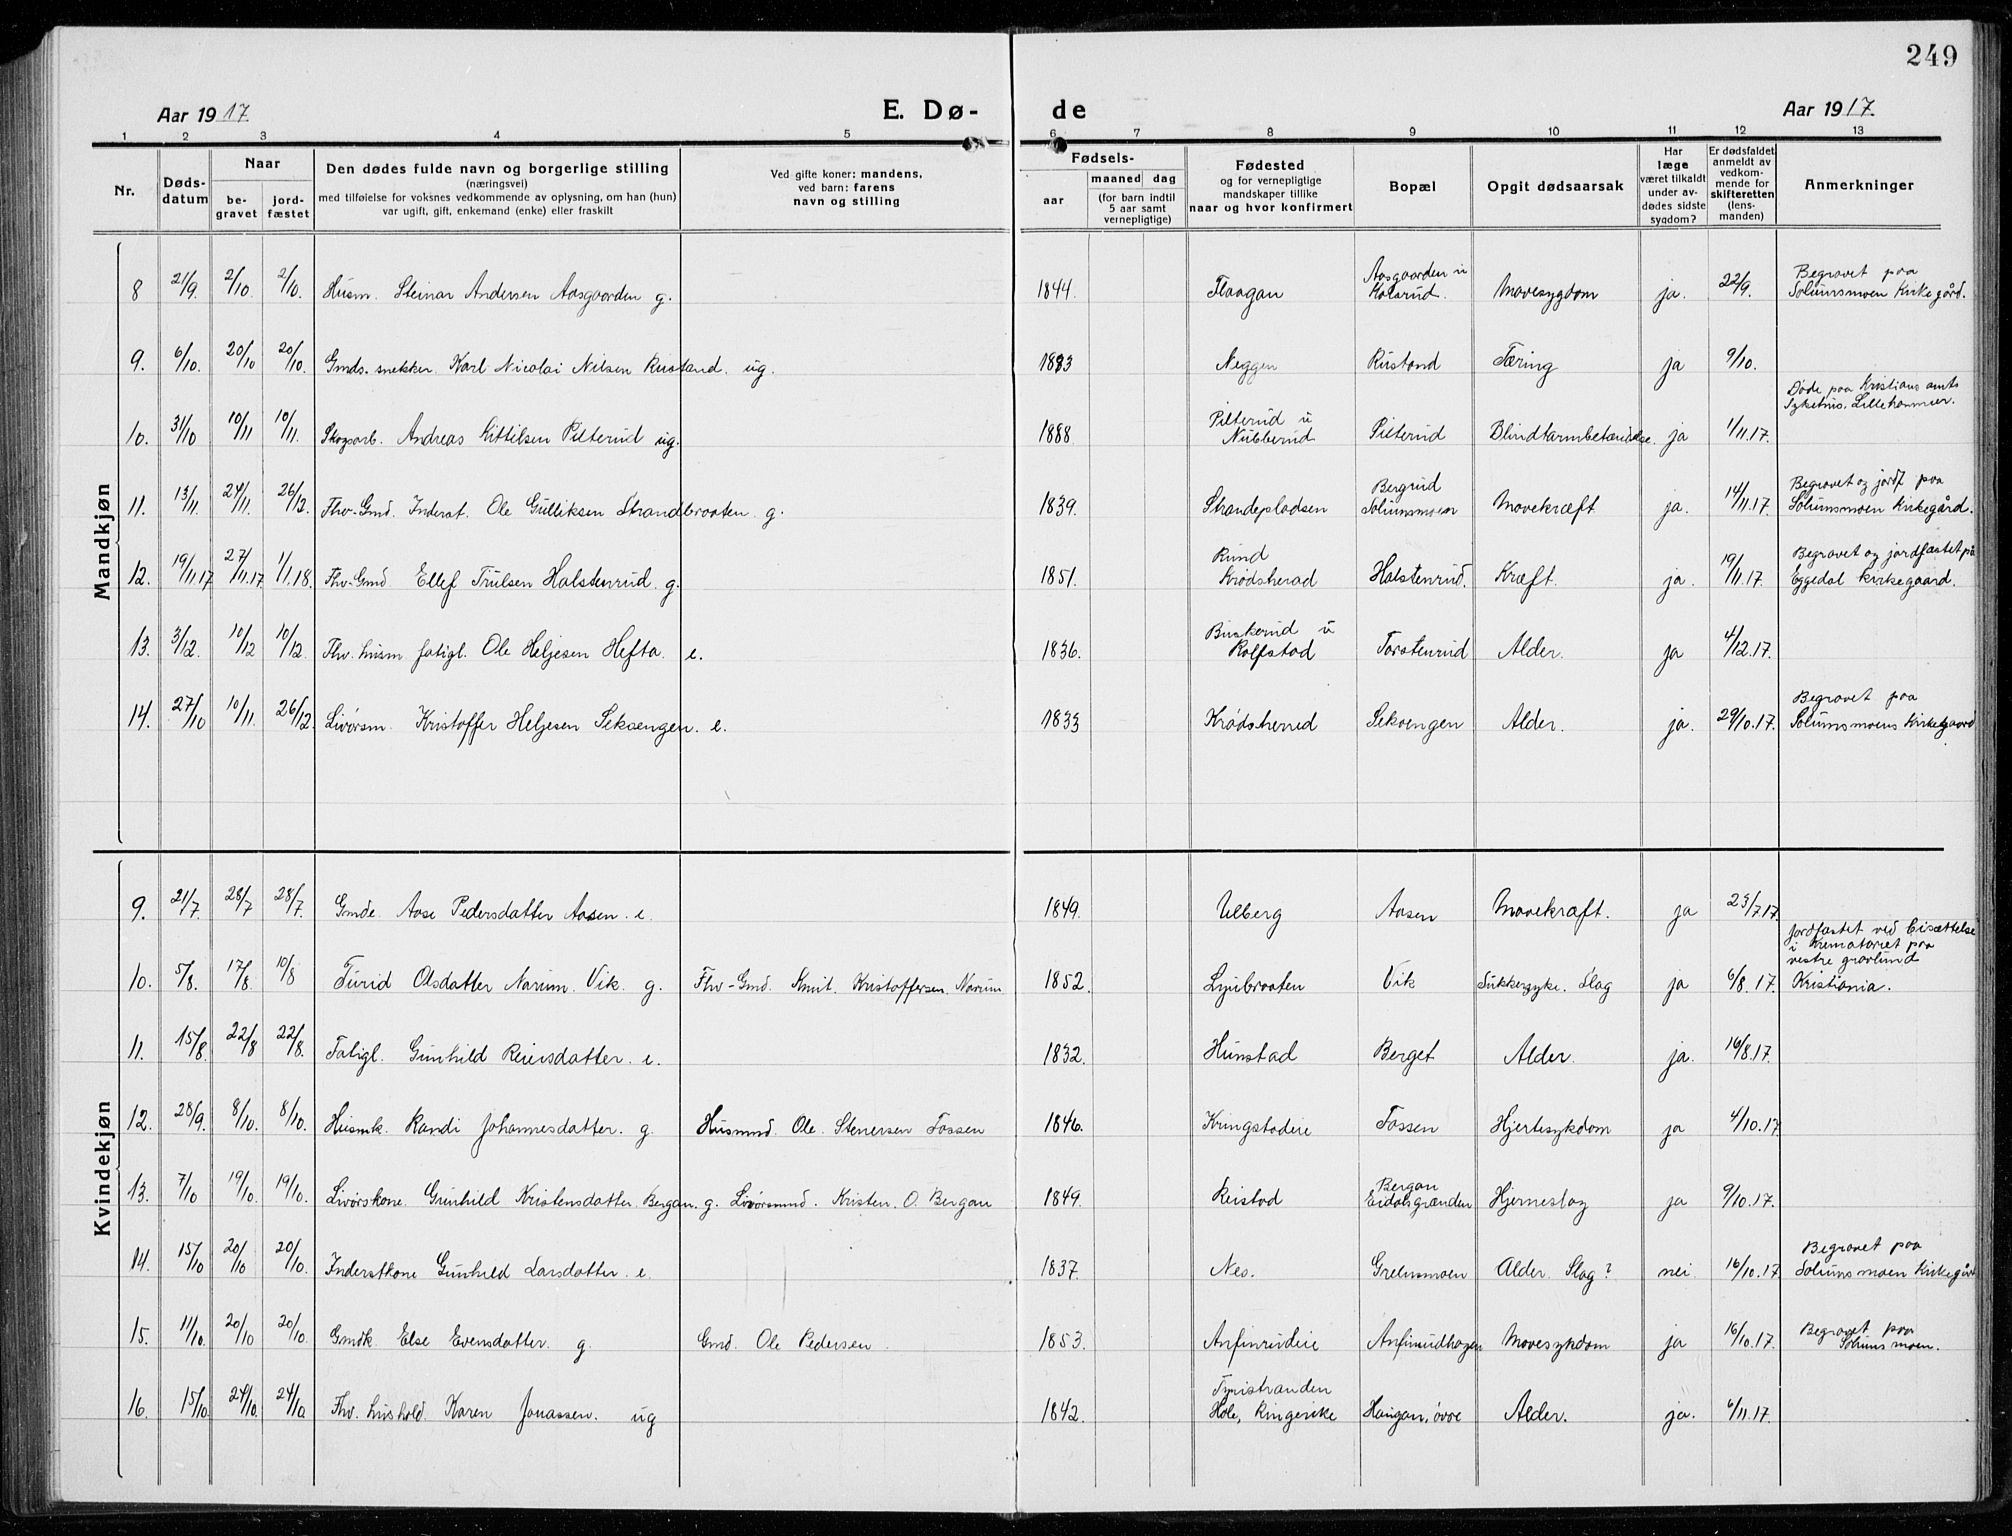 249
Aar 1917 E. Dø- de Aar 1917.
1 2 3 4 5 6 7 8 9 10 11 12 13
Nr.
Døds-datum
Naar
be-gravet
jord-fæstet
Den dødes fulde navn og borgerlige stilling
(næringsvei)
med tilføielse for voksnes vedkommende av oplysning, om han (hun)
var ugift, gift, enkemand (enke) eller fraskilt
Ved gifte koner: mandens,
ved barn: farens
navn og stilling
Fødsels-
aar
maaned dag
(for barn indtil
5 aar samt
vernepligtige)
Fødested
og for vernepligtige
mandskaper tillike
naar og hvor konfirmert
Bopæl
Opgit dødsaarsak
Har
læge
været tilkaldt
under av-
dødes sidste
sygdom?
Er dødsfaldet
anmeldt av
vedkom-
mende for
skifteretten
(lens-
manden)
Anmerkninger
Mandkjøn
8 21/9. 2/10. 2/10. Husm. Steinar Andersen Aasgaarden g. 1844. Flaagan Aasgaarden u Kolsrud. Mavesygdom ja. 22/9. Begravet paa Solumsmoen Kirkegård.
9. 6/10. 20/10 20/10. Gmds. snekker Karl Nicolai Nilsen Rustand. ug. 1883 Neggen Rustand Tæring ja 9/10.
10. 31/10 10/11 10/11. Skogsarb. Andreas Kittilsen Pilterud ug. 1888 Pilterud u Nubberud Pilterud Blindtarmbetændelse. ja 1/11.17. Døde paa Kristians amts Sykehus, Lillehammer.
11. 13/11. 24/11. 26/12. Fhv. Gmd. Inderst. Ole Gulliksen Strandbraaten g. 1839. Strandepladsen Bergrud Solumsmoen Mavekræft ja. 14/11.17. Begravet og jordf. paa Solumsmoen Kirkegård.
12. 19/11.17 27/11.17 1/1.18. Fhv. Gmd. Ellef Trulsen Halstenrud. g. 1851. Rund Krødsherad Halstenrud. Kræft. ja. 19/11.17. Begravet og jordfæstet på Eggedal Kirkegaard.
13. 3/12. 10/12 10/12. Fhv. husm. fatigl. Ole Heljesen Hefta. e. 1836. Buskerud u Rolfstad Torstenrud Alder. ja 4/12.17.
14. 27/10 10/11. 26/12. Livørsm. Kristoffer Heljesen Sekaengen. e. 1833 Krødsherred Sekaengen Alder. ja. 29/10.17. Begravet paa Solumsmoens Kirkegaard
Kvindekjøn
9. 21/7. 28/7 28/7. Gmde. Aase Pedersdatter Aasen. e. 1849. Ulberg Aasen Mavekræft. ja 23/7.17.
10. 5/8. 17/8. 10/8 Turid Olsdatter Narum. Vik. g. Fhv-Gmd. Knut Kristoffersen. Narum 1852. Ljubraaten Vik Sukkersyke. Slag ja 6/8.17. Jordfæstet ved Bisættelse i Krematoriet paa vestre gravlund Kristiania.
11. 15/8. 22/8 22/8. Fatigl. Gunhild Reiersdatter. e. 1832. Hunstad Berget Alder. ja. 16/8.17.
12. 28/9. 8/10. 8/10. Husmk. Randi Johannesdatter. g. Husmnd. Ole Stenersen Fossen 1846. Kringstadeie Fossen Hjertesykdom ja 4/10.17.
13. 7/10 19/10. 19/10. Livørskone. Gunhild Kristensdatter. Bergan. g. Livørsmnd. Kristen. O. Bergan 1849. Reistad Bergan Eidalsgrænden Hjerneslag ja 9/10.17.
14. 15/10 20/10 20/10. Inderstkone Gunhild Larsdatter. e. 1837. Nes. Grelusmoen Alder. Slag? nei 16/10.17. Begravet paa Solumsmoen Kirkegård
15. 11/10. 20/10 20/10. Gmdk. Else Evensdatter. g. Gmd. Ole Pedersen 1853. Anfinrudeie Anfinrudhagen Mavesykdom ja 16/10.17. Begravet paa Solumsmoen.
16. 15/10. 24/10. 24/10. Fhv. hushold. Karen Jonassen. ug 1842. Tyristranden Hole, Ringerike Haugan, øvre Alder. ja. 6/11.17.